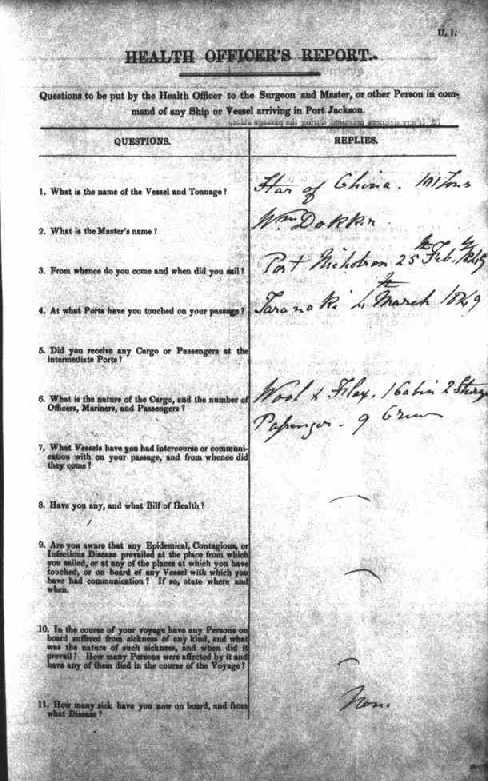 H. 1.
HEALTH OFFICER'S REPORT.
Questions to be put by the Health Officer to the Surgeon and Master, or other Person in com-
mand of any Ship or Vessel arriving in Port Jackson.
QUESTIONS.
REPLIES.
1. What is the name of the Vessel and Tonnage?
Star of China. 101 Tons
2. What is the Master's name?
Wm
3. From whence do you come and when did you sail?
Port Nicholson 25th Feby 1849
4. At what Ports have you touched on your passage?
Taranaki 4th March 1849
5. Did you receive any Cargo or Passengers at the
Intermediate Ports?
6. What is the nature of the Cargo, and the number of
Officers, Mariners, and Passengers?
Wool & Flax. 1 Cabin 2 Steerge
Passenger. 9 Crew
7. What Vessels have you had intercourse or communi-
cation with on your passage, and from whence did
they come?
8. Have you any, and what Bill of Health?
9. Are you aware that any Epidemical, Contagious, or
Infectious Disease prevailed at the place from which
you sailed, or at any of the places at which you have
touched, or on board of any Vessel with which you
have had communication? If so, state where and
when.
10. In the course of your voyage have any Persons on
board suffered from sickness of any kind, and what
was the nature of such sickness, and when did it
prevail? How many Persons were affected by it and
have any of them died in the course of the Voyage?
11. How many sick have you now on board, and from
what Disease?
None